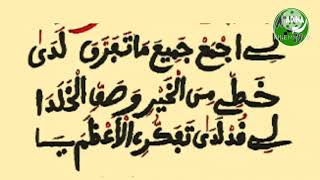 لِے اجْمَعْ جَمِيعَ مَا تَفَرَّقَ لَدَى
خَطِّے مِنَ الْخَيْرِ وَصَفِّ الْخَلَدَا
لِے قُدْ لَدَى تَفَكُّرِى الْأَعْظَمَ يَا